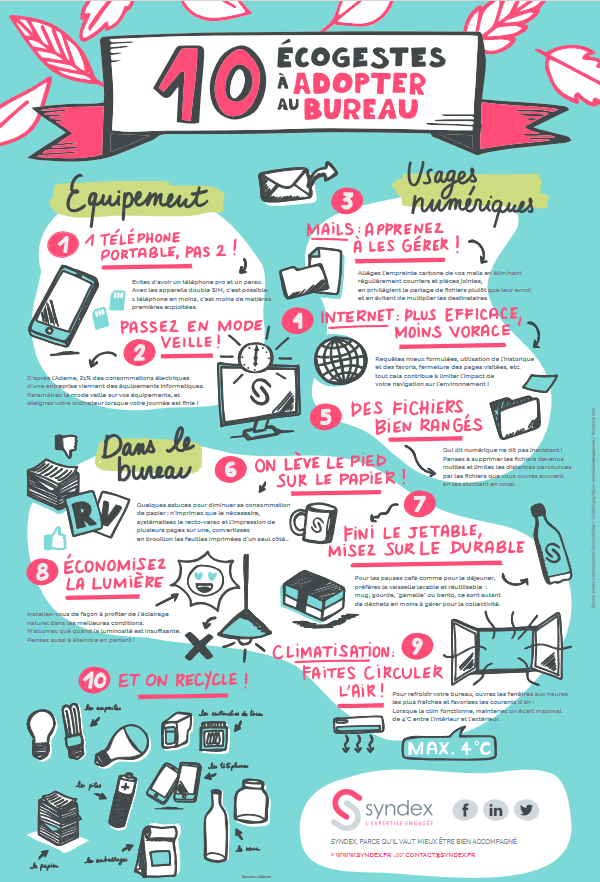 10
ÉCOGESTES
À ADOPTER
AU BUREAU
Équipement
1
1 TÉLÉPHONE
PORTABLE, PAS 2 !
Évitez d'avoir un téléphone pro et un perso.
Avec les appareils double SIM, c'est possible.
1 téléphone en moins, c'est moins de matières
premières exploitées.
PASSEZ EN MODE
2
VEILLE !
D'après l'Ademe, 21% des consommations électriques
d'une entreprise viennent des équipements informatiques.
Paramétrez la mode veille sur vos équipements, et
éteignez votre ordinateur lorsque votre journée est finie !
S
Usages
numériques
3
MAILS : APPRENEZ
À LES GÉRER !
Allégez l'empreinte carbone de vos mails en éliminant
régulièrement courriers et pièces jointes,
en privilégiant le partage de fichiers plutôt que leur envoi
et en évitant de multiplier les destinataires.
4
INTERNET : PLUS EFFICACE,
MOINS VORACE
Requêtes mieux formulées, utilisation de l'historique
et des favoris, fermeture des pages visitées, etc.
tout cela contribue à limiter l'impact de
votre navigation sur l'environnement !
5
DES FICHIERS
BIEN RANGÉS
Qui dit numérique ne dit pas inexistant !
Pensez à supprimer les fichiers devenus
inutiles et limitez les distances parcourues
par les fichiers que vous ouvrez souvent
en les stockant en local.
Dans le
bureau
6
ON LÈVE LE PIED
SUR LE PAPIER !
RV
Quelques astuces pour diminuer sa consommation
de papier : n'imprimez que le nécessaire,
systématisez le recto-verso et l'impression de
plusieurs pages sur une, convertissez
en brouillon les feuilles imprimées d'un seul côté...
S
7
FINI LE JETABLE,
MISEZ SUR LE DURABLE
S
Pour les pauses café comme pour le déjeuner,
préférez la vaisselle lavable et réutilisable :
mug, gourde, "gamelle" ou bento, ce sont autant
de déchets en moins à gérer pour la collectivité.
8
ÉCONOMISEZ
LA LUMIÈRE
Installez-vous de façon à profiter de l'éclairage
naturel dans les meilleures conditions.
N'allumez que quand la luminosité est insuffisante.
Pensez aussi à éteindre en partant !
CLIMATISATION :
9
FAITES CIRCULER
L'AIR !
Pour refroidir votre bureau, ouvrez les fenêtres aux heures
les plus fraîches et favorisez les courants d'air !
Lorsque la clim fonctionne, maintenez un écart maximal
de 4°C entre l'intérieur et l'extérieur.
MAX. 4°C
10
ET ON RECYCLE !
les ampoules
les cartouches de toner
les piles
les téléphones
le papier
les emballages
le verre
Source : Ademe
syndex
L'EXPERTISE ENGAGÉE
f in
SYNDEX, PARCE QU'IL VAUT MIEUX ÊTRE BIEN ACCOMPAGNÉ
> WWW.SYNDEX.FR /// CONTACT@SYNDEX.FR